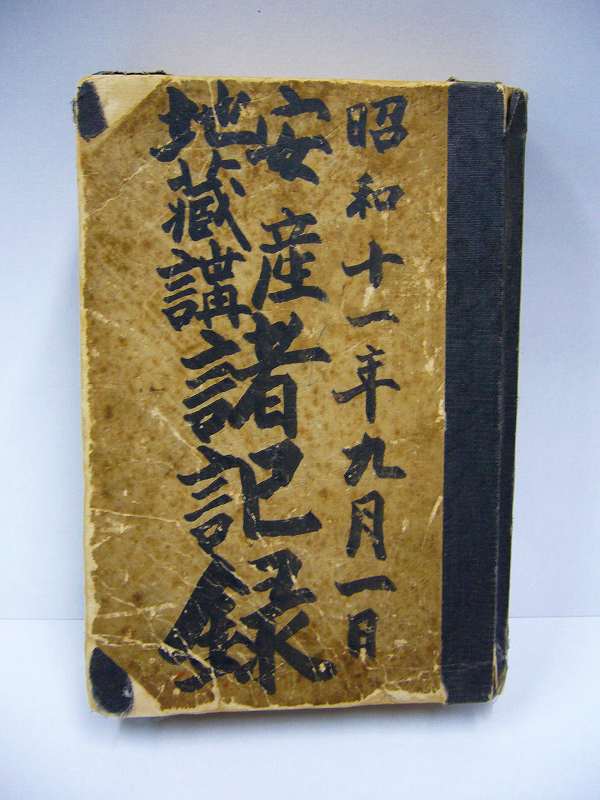 昭和十一年九月一日
安産
地藏講
諸記録